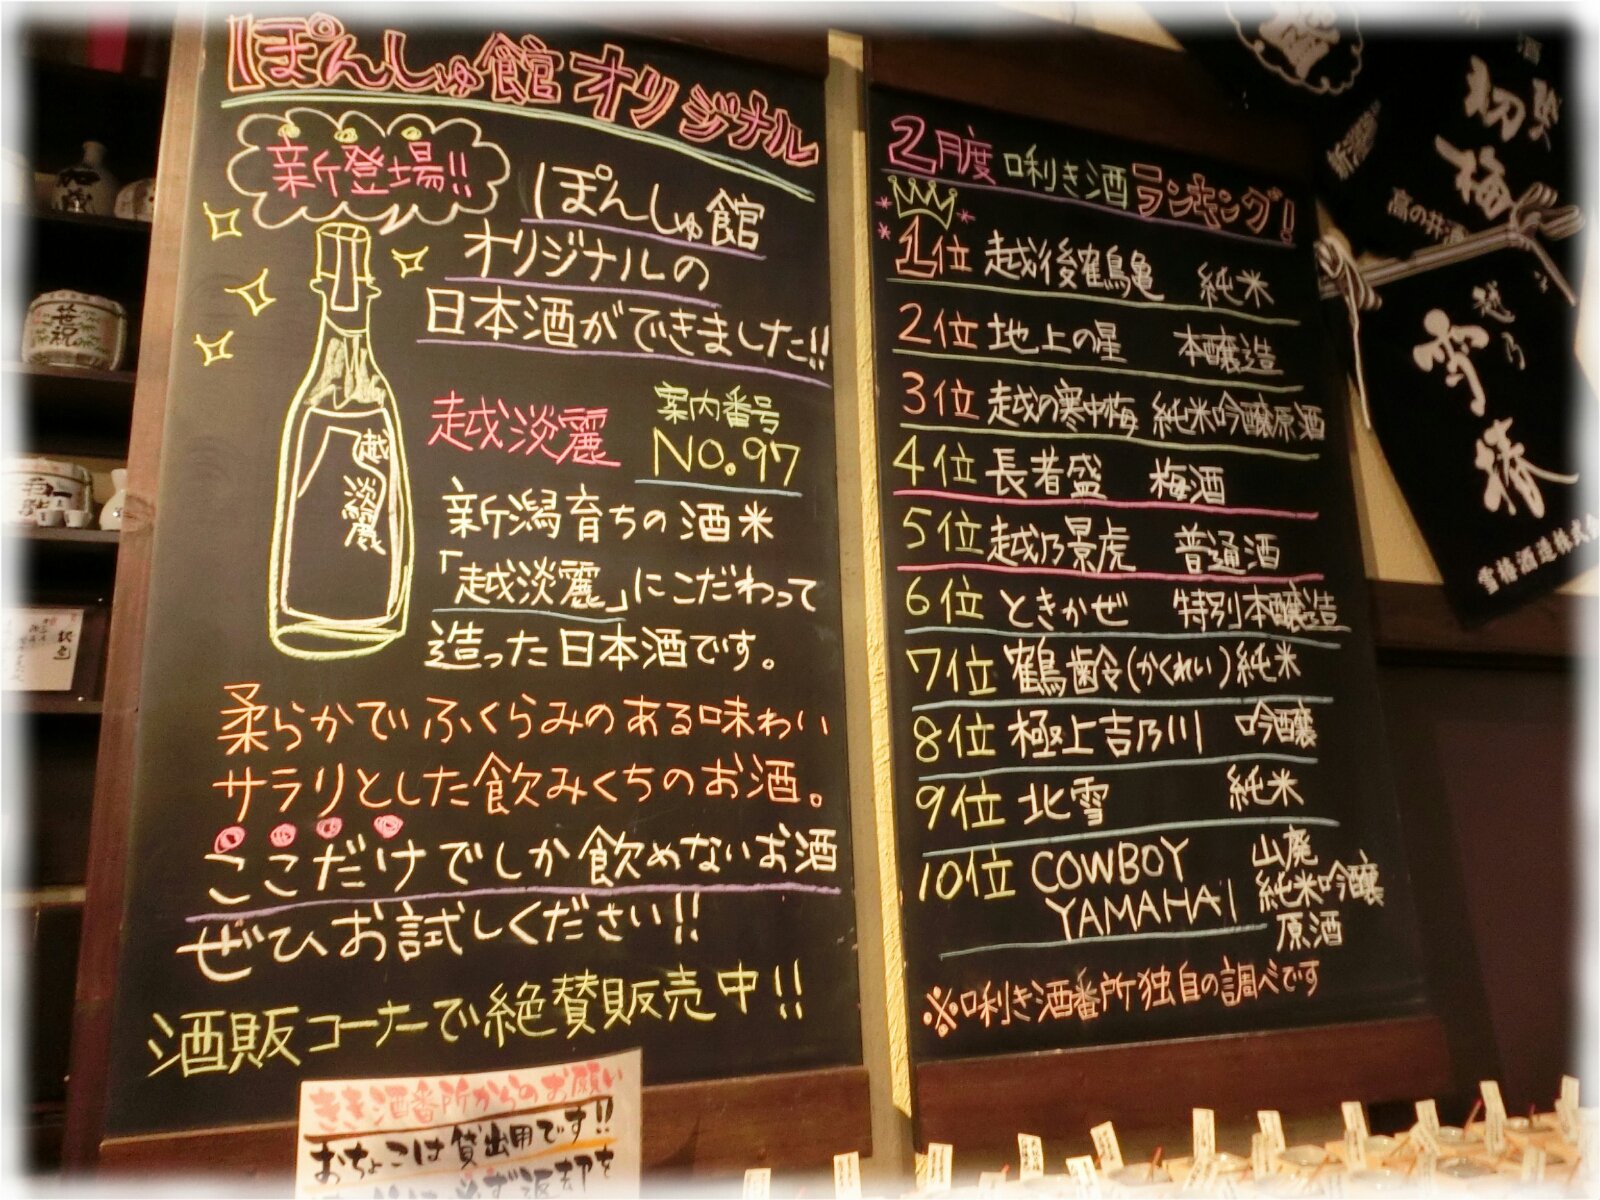 ぽんしゅ館オリジナル
新登場!!
ぽんしゅ館
オリジナルの
日本酒ができました!!
越淡麗
案内番号
No.97
越
淡麗
新潟育ちの酒米
「越淡麗」にこだわって
造った日本酒です。
柔らかでふくらみのある味わい
サラリとした飲みくちのお酒。
ここだけでしか飲めないお酒
ぜひお試しください!!
酒販コーナーで絶賛販売中!!
きき酒番所からのお願い
おちょこは貸出用です!!
2月度 唎き酒ランキング!
1位 越後鶴亀 純米
2位 地上の星 本醸造
3位 越の寒中梅 純米吟醸原酒
4位 長者盛 梅酒
5位 越乃景虎 普通酒
6位 ときかぜ 特別本醸造
7位 鶴齢(かくれい)純米
8位 極上吉乃川 吟醸
9位 北雪 純米
10位 COWBOY YAMAHAI 山廃
純米吟醸
原酒
※唎き酒番所独自の調べです
初梅
高の井酒
越乃
雪椿
雪椿酒造株式会
笹祝